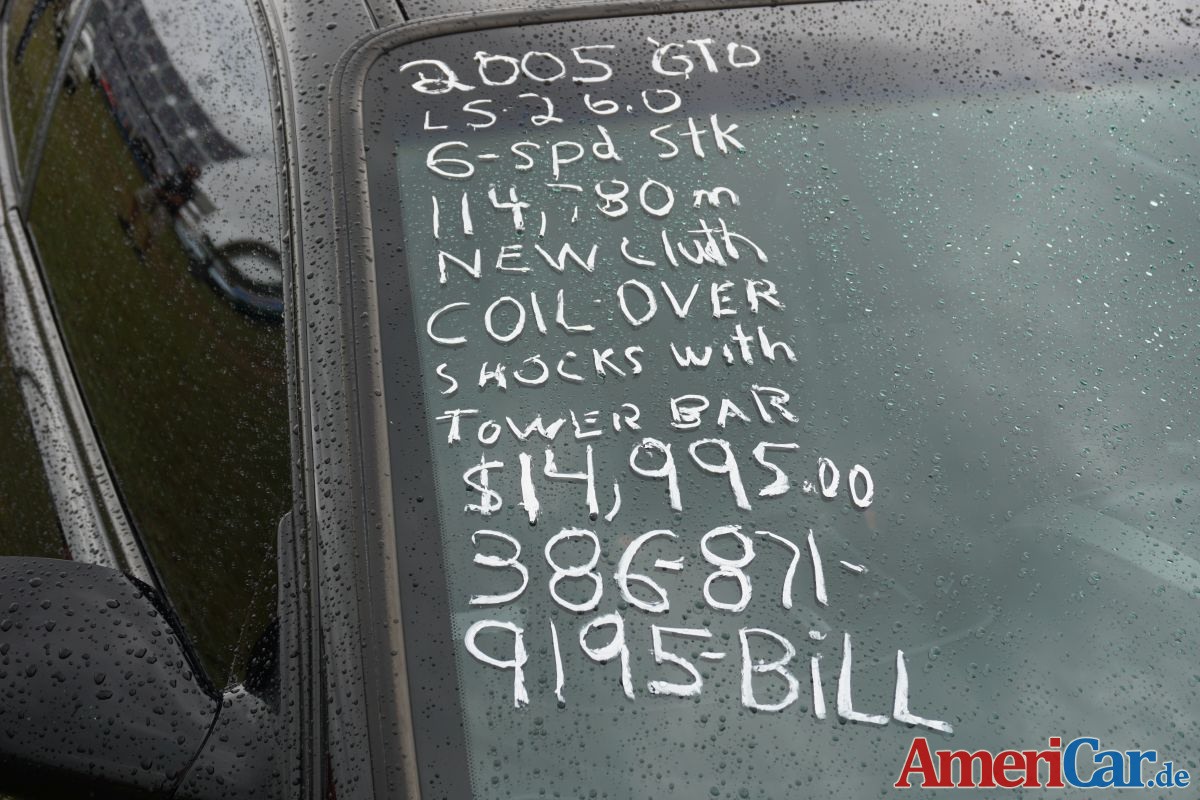 2005 GTO
LS-2 6.0
6-spd Stk
114,780 m
NEW Cluth
COIL-OVER
SHOCKS with
TOWER BAR
$14,995.00
386-871-
9195-BiLL
AmeriCar.de